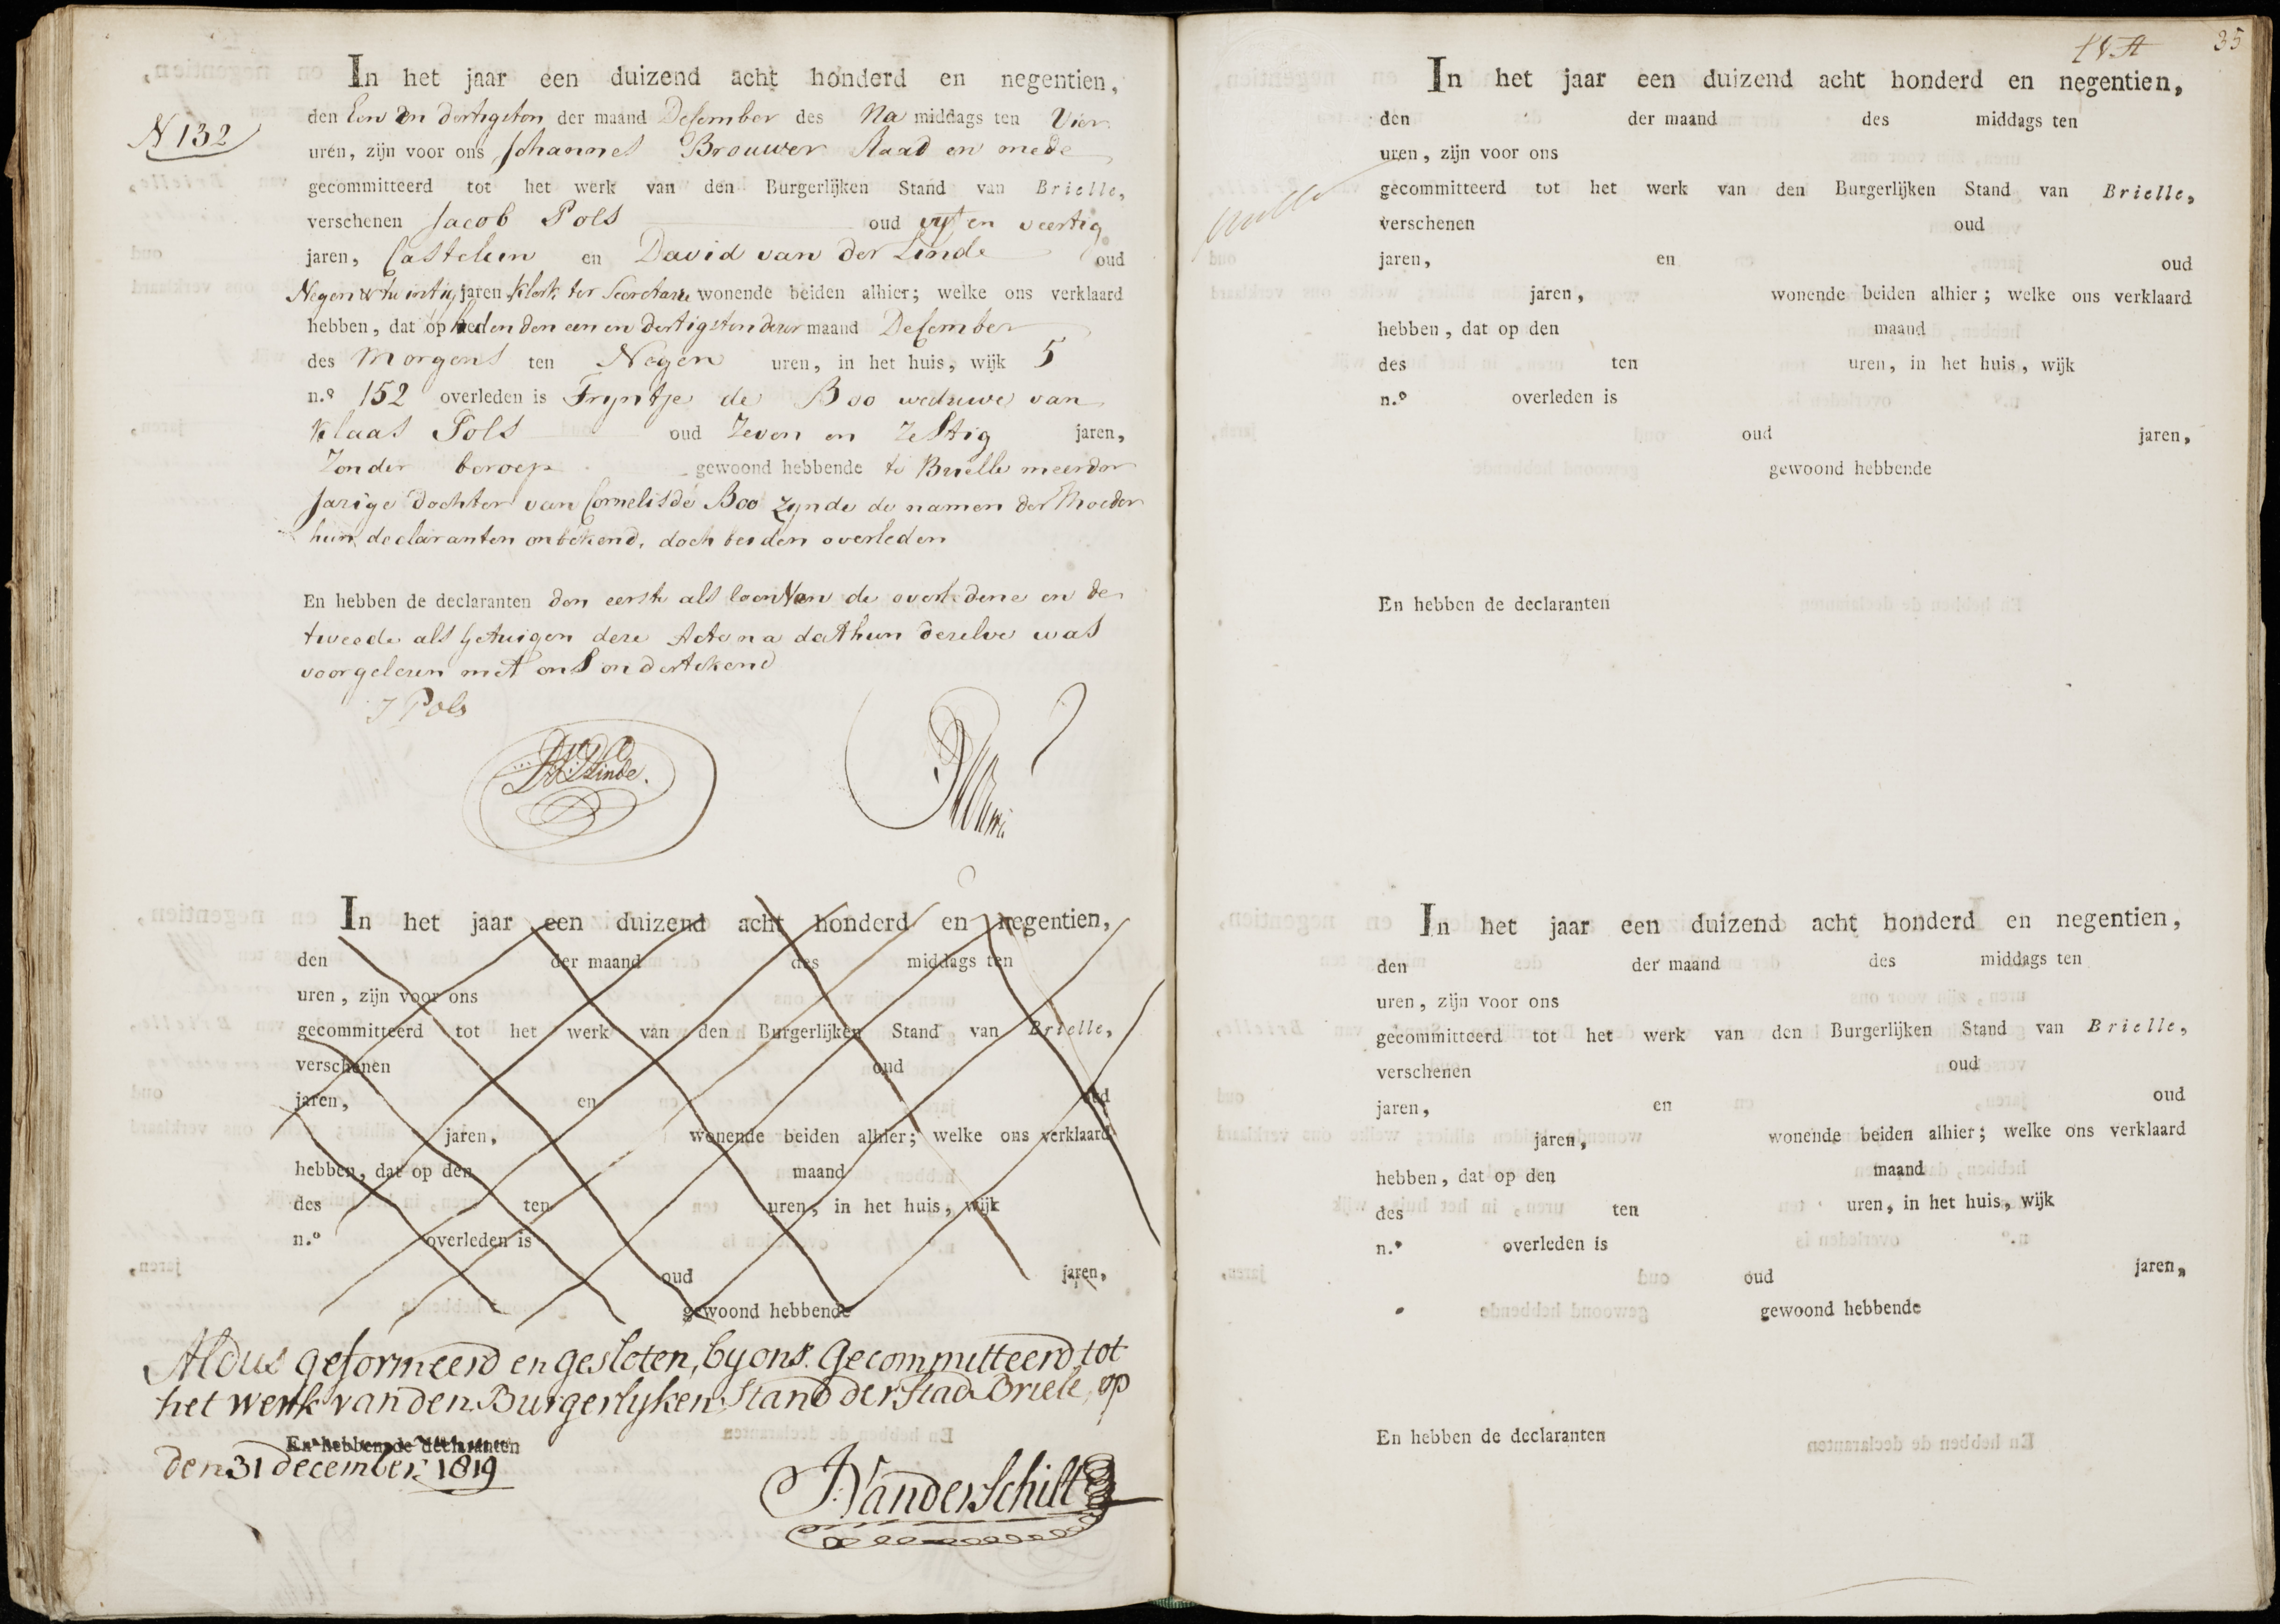 In het jaar een duizend acht honderd en negentien,
N 132
den Een en dertigsten der maand December des Na middags ten Vier
uren, zijn voor ons Johannes Brouwer Raad en mede
gecommitteerd tot het werk van den Burgerlijken Stand van Brielle,
verschenen Jacob Pols oud vyf en veertig
jaren, Castelein en David van der Linde oud
Negen en twintig jaren Klerk ter Secretarie wonende beiden alhier; welke ons verklaard
hebben, dat op heden den een en dertigsten dezer maand December
des Morgens ten Negen uren, in het huis, wijk 5
n.o 152 overleden is Tryntje de Boo weduwe van
Klaas Pols oud Zeven en Zestig jaren,
Zonder beroep gewoond hebbende te Brielle meerder
Jarige dochter van Cornelis de Boo zynde de namen der Moeder
hun declaranten onbekend, doch beiden overleden
En hebben de declaranten den eerste als Zoon van de overledene en de
tweede als Getuigen deze Acte na dat hun dezelve was
voorgelezen met ons ondertekend
J Pols
In het jaar een duizend acht honderd en negentien,
den der maand des middags ten
uren, zijn voor ons
gecommitteerd tot het werk van den Burgerlijken Stand van Brielle,
verschenen oud
jaren, en oud
jaren, wonende beiden alhier; welke ons verklaard
hebben, dat op den maand
des ten uren, in het huis, wijk
n.o overleden is
oud jaren,
gewoond hebbende
Aldus geformeerd en gesloten, by ons Gecommitteerd tot
het werk van den Burgerlyken Stand der Stad Briele, op
En hebben de declaranten
den 31 december 1819
J. Vander Schilt
35
In het jaar een duizend acht honderd en negentien,
den der maand des middags ten
uren, zijn voor ons
gecommitteerd tot het werk van den Burgerlijken Stand van Brielle,
verschenen oud
jaren, en oud
jaren, wonende beiden alhier; welke ons verklaard
hebben, dat op den maand
des ten uren, in het huis, wijk
n.o overleden is
oud jaren,
gewoond hebbende
En hebben de declaranten
In het jaar een duizend acht honderd en negentien,
den der maand des middags ten
uren, zijn voor ons
gecommitteerd tot het werk van den Burgerlijken Stand van Brielle,
verschenen oud
jaren, en oud
jaren, wonende beiden alhier; welke ons verklaard
hebben, dat op den maand
des ten uren, in het huis, wijk
n.o overleden is
oud jaren,
gewoond hebbende
En hebben de declaranten